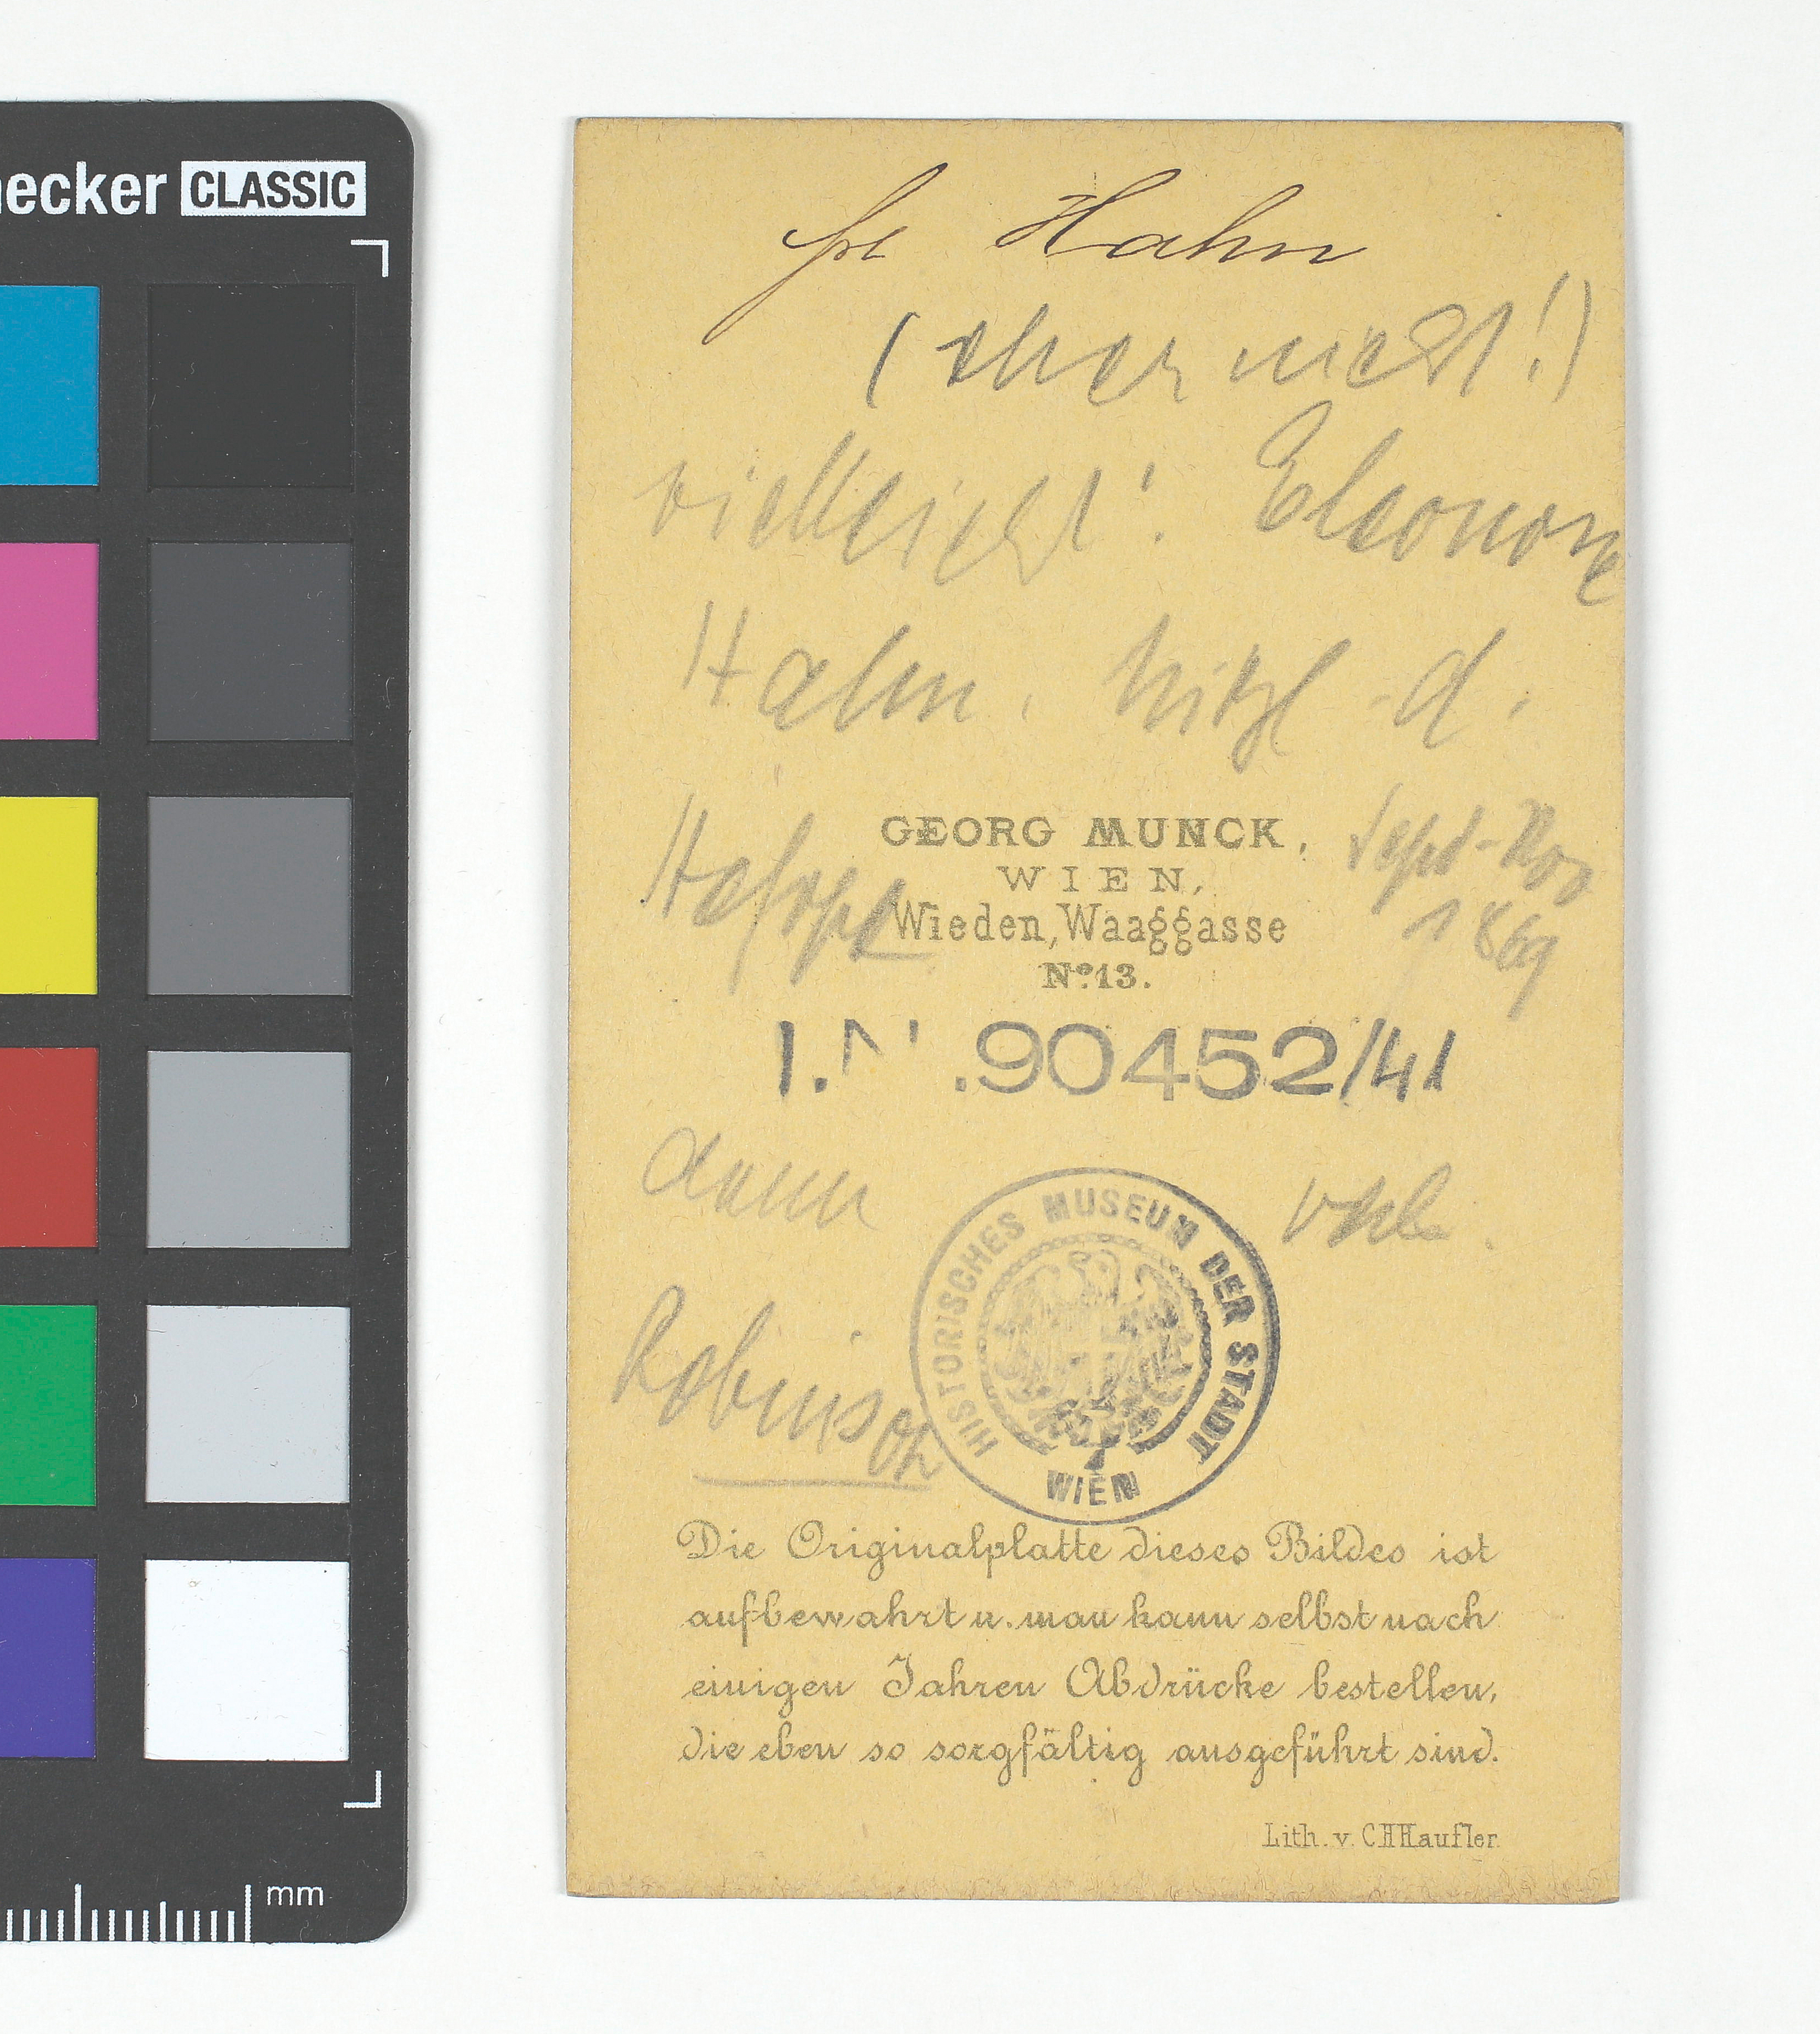 ecker CLASSIC
frl Hahn
(aber nicht!)
vielleicht: Eleonore
Hahn, Mitgl. d.
Hofoper
Sept-Nov
1869
GEORG MUNCK,
WIEN,
Wieden, Waaggasse
Nº 13.
I.N.90452/41
dann
Robinson
HISTORISCHES MUSEUM DER STADT
WIEN
Die Originalplatte dieses Bildes ist
aufbewahrt u. man kann selbst nach
einigen Jahren Abdrücke bestellen,
die eben so sorgfältig ausgeführt sind.
Lith. v. C.H.Haufler
mm